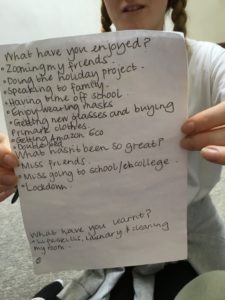 What have you enjoyed?
• Zooming my friends.
• Doing the holiday project.
• Speaking to family.
• Having time off school.
• Enjoy wearing masks
• Getting new glasses and buying
Primark clothes.
• Getting Amazon Eco
• Double bed
What hasn't been so great?
• Miss friends.
• Miss going to school/ebcollege.
• Lockdown.
What have you learnt?
• Lifeskills, laundry & cleaning
my room.